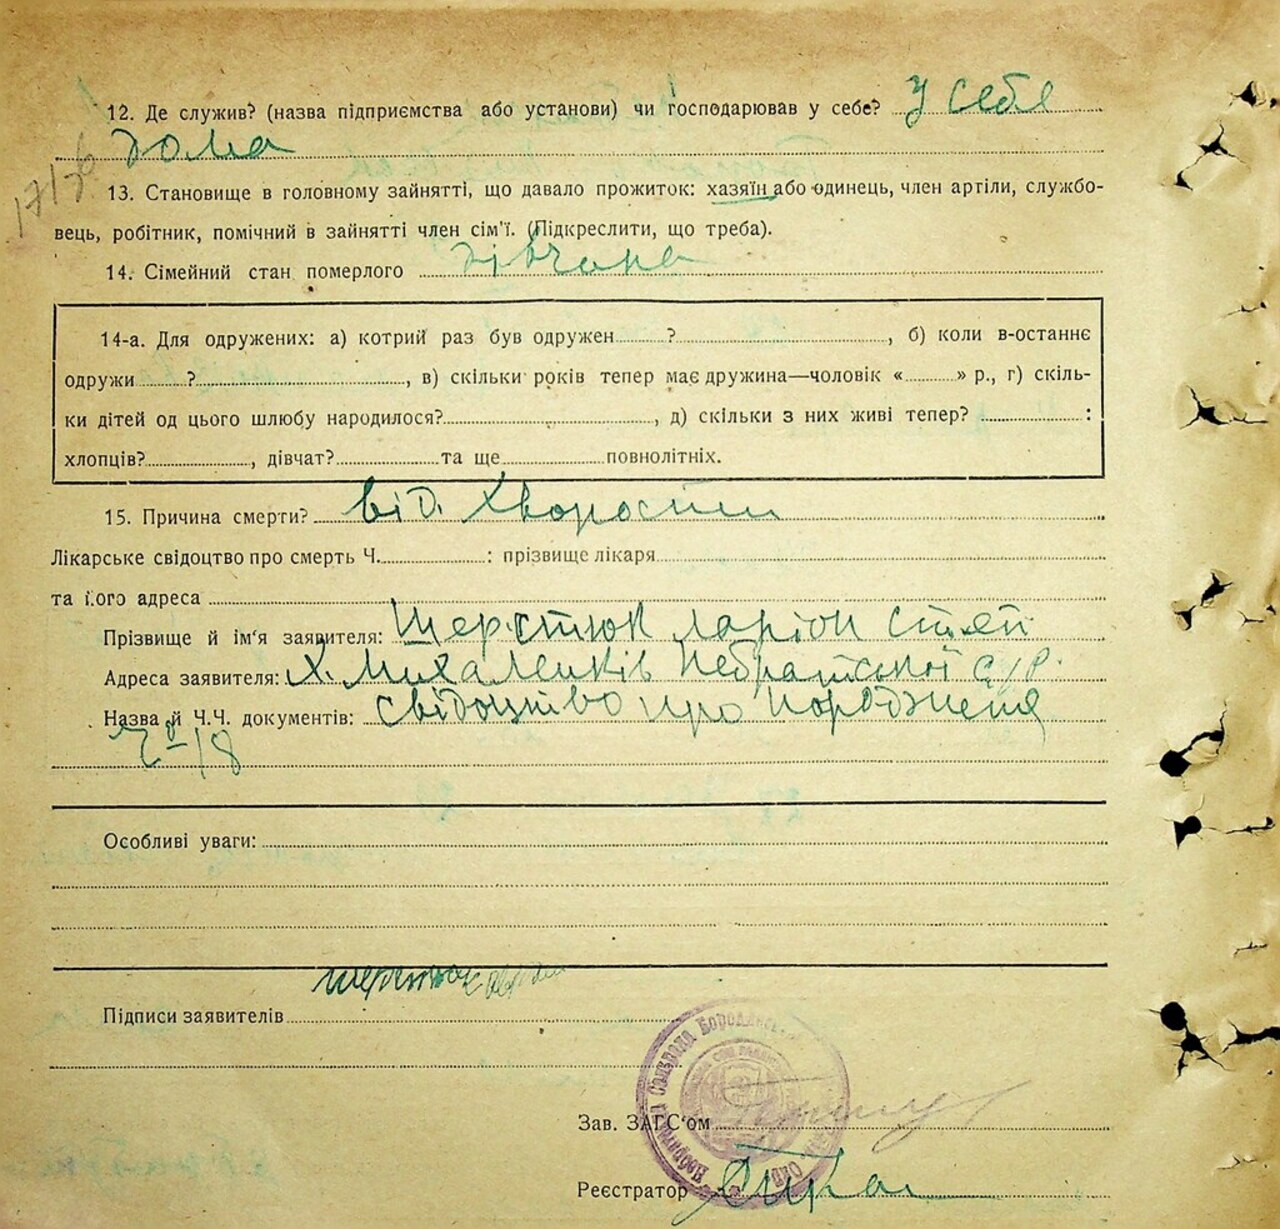 12. Де служив? (назва підприємства або установи) чи господарював у себе? у себе
дома
13. Становище в головному зайнятті, що давало прожиток: хазяїн або одинець, член артіли, службо-
вець, робітник, помічний в зайнятті член сім'ї. (Підкреслити, що треба).
14. Сімейний стан померлого дівчина
14-а. Для одружених: а) котрий раз був одружен ? , б) коли в-останнє
одружи ? , в) скільки років тепер має дружина—чоловік « » р., г) скіль-
ки дітей од цього шлюбу народилося? , д) скільки з них живі тепер? :
хлопців? , дівчат? та ще повнолітніх.
15. Причина смерти? від хворости
Лікарське свідоцтво про смерть Ч. : прізвище лікаря
та його адреса
Прізвище й ім'я заявителя: Шерстюк Ларіон Степ
Адреса заявителя: х. Михаленків Небратської с/р.
Назва й Ч.Ч. документів: свідоцтво про народженя
18
Особливі уваги:
Шерстюк
Підписи заявителів
Небратська Сільрада Бородянськ
Зав. ЗАГС'ом
Реєстратор